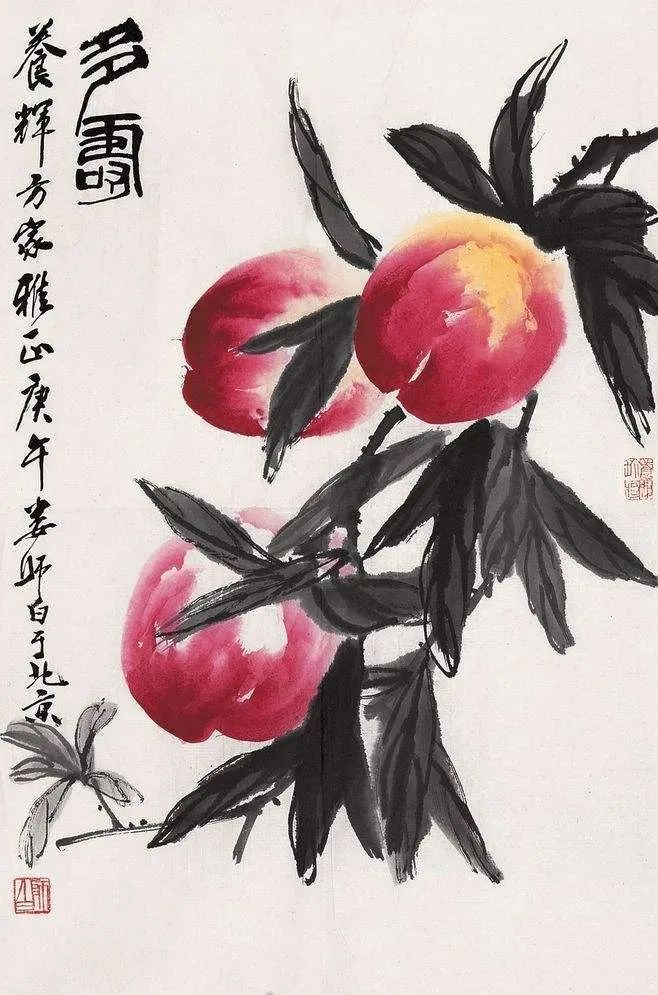 多壽
養輝方家雅正庚午娄师白于北京